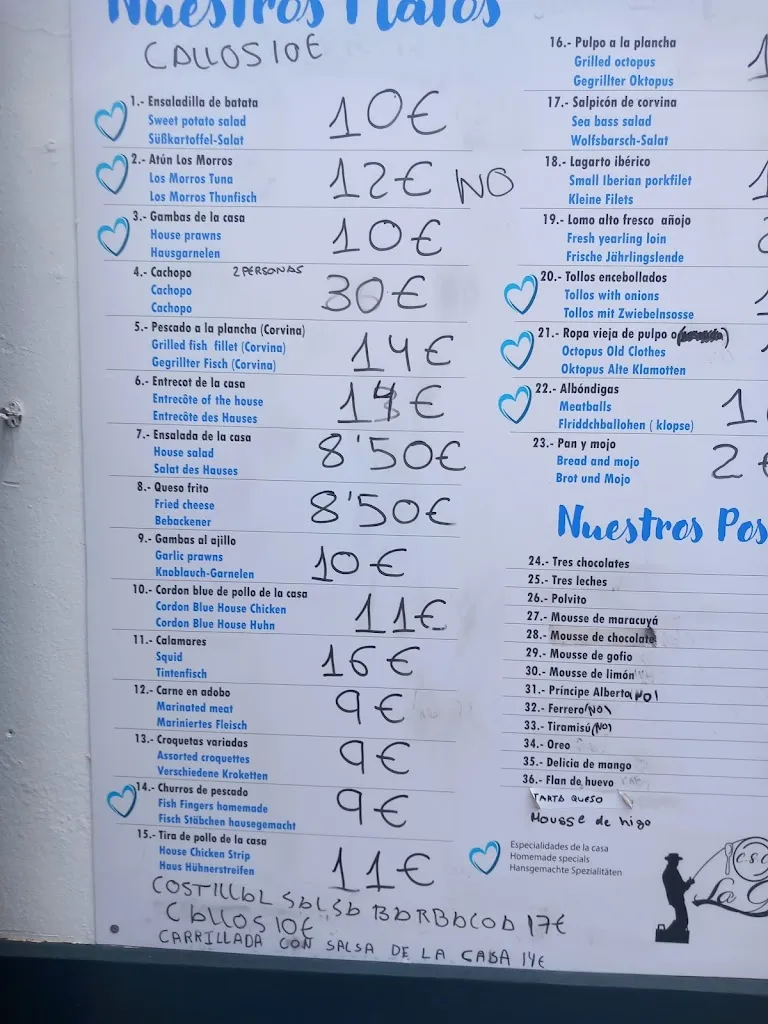 Nuestros Platos
CALLOS 10€
1.- Ensaladilla de batata
Sweet potato salad
Süßkartoffel-Salat
10€
2.- Atún Los Morros
Los Morros Tuna
Los Morros Thunfisch
12€ NO
3.- Gambas de la casa
House prawns
Hausgarnelen
10€
4.- Cachopo 2 PERSONAS
Cachopo
Cachopo
30€
5.- Pescado a la plancha (Corvina)
Grilled fish fillet (Corvina)
Gegrillter Fisch (Corvina)
14€
6.- Entrecot de la casa
Entrecôte of the house
Entrecôte des Hauses
7.- Ensalada de la casa
House salad
Salat des Hauses
8'50€
8.- Queso frito
Fried cheese
Bebackener
8'50€
9.- Gambas al ajillo
Garlic prawns
Knoblauch-Garnelen
10€
10.- Cordon blue de pollo de la casa
Cordon Blue House Chicken
Cordon Blue House Huhn
11€
11.- Calamares
Squid
Tintenfisch
16€
12.- Carne en adobo
Marinated meat
Mariniertes Fleisch
9€
13.- Croquetas variadas
Assorted croquettes
Verschiedene Kroketten
9€
14.- Churros de pescado
Fish Fingers homemade
Fisch Stäbchen hausegemacht
9€
15.- Tira de pollo de la casa
House Chicken Strip
Haus Hühnerstreifen
11€
COSTILLAL SALSA BARBACOA 17€
CALLOS 10€
CARRILLADA CON SALSA DE LA CASA 14€
16.- Pulpo a la plancha
Grilled octopus
Gegrillter Oktopus
17.- Salpicón de corvina
Sea bass salad
Wolfsbarsch-Salat
18.- Lagarto ibérico
Small Iberian porkfilet
Kleine Filets
19.- Lomo alto fresco añojo
Fresh yearling loin
Frische Jährlingslende
20.- Tollos encebollados
Tollos with onions
Tollos mit Zwiebelnsosse
21.- Ropa vieja de pulpo o
Octopus Old Clothes
Oktopus Alte Klamotten
22.- Albóndigas
Meatballs
Flriddchballohen ( klopse)
23.- Pan y mojo
Bread and mojo
Brot und Mojo
2€
Nuestros Pos
24.- Tres chocolates
25.- Tres leches
26.- Polvito
27.- Mousse de maracuyá
28.- Mousse de chocolate
29.- Mousse de gofio
30.- Mousse de limón
31.- Príncipe Alberto (NO)
32.- Ferrero (NO)
33.- Tiramisú (NO)
34.- Oreo
35.- Delicia de mango
36.- Flan de huevo
TARTA QUESO
Mousse de higo
Especialidades de la casa
Homemade specials
Hansgemachte Spezialitäten
La